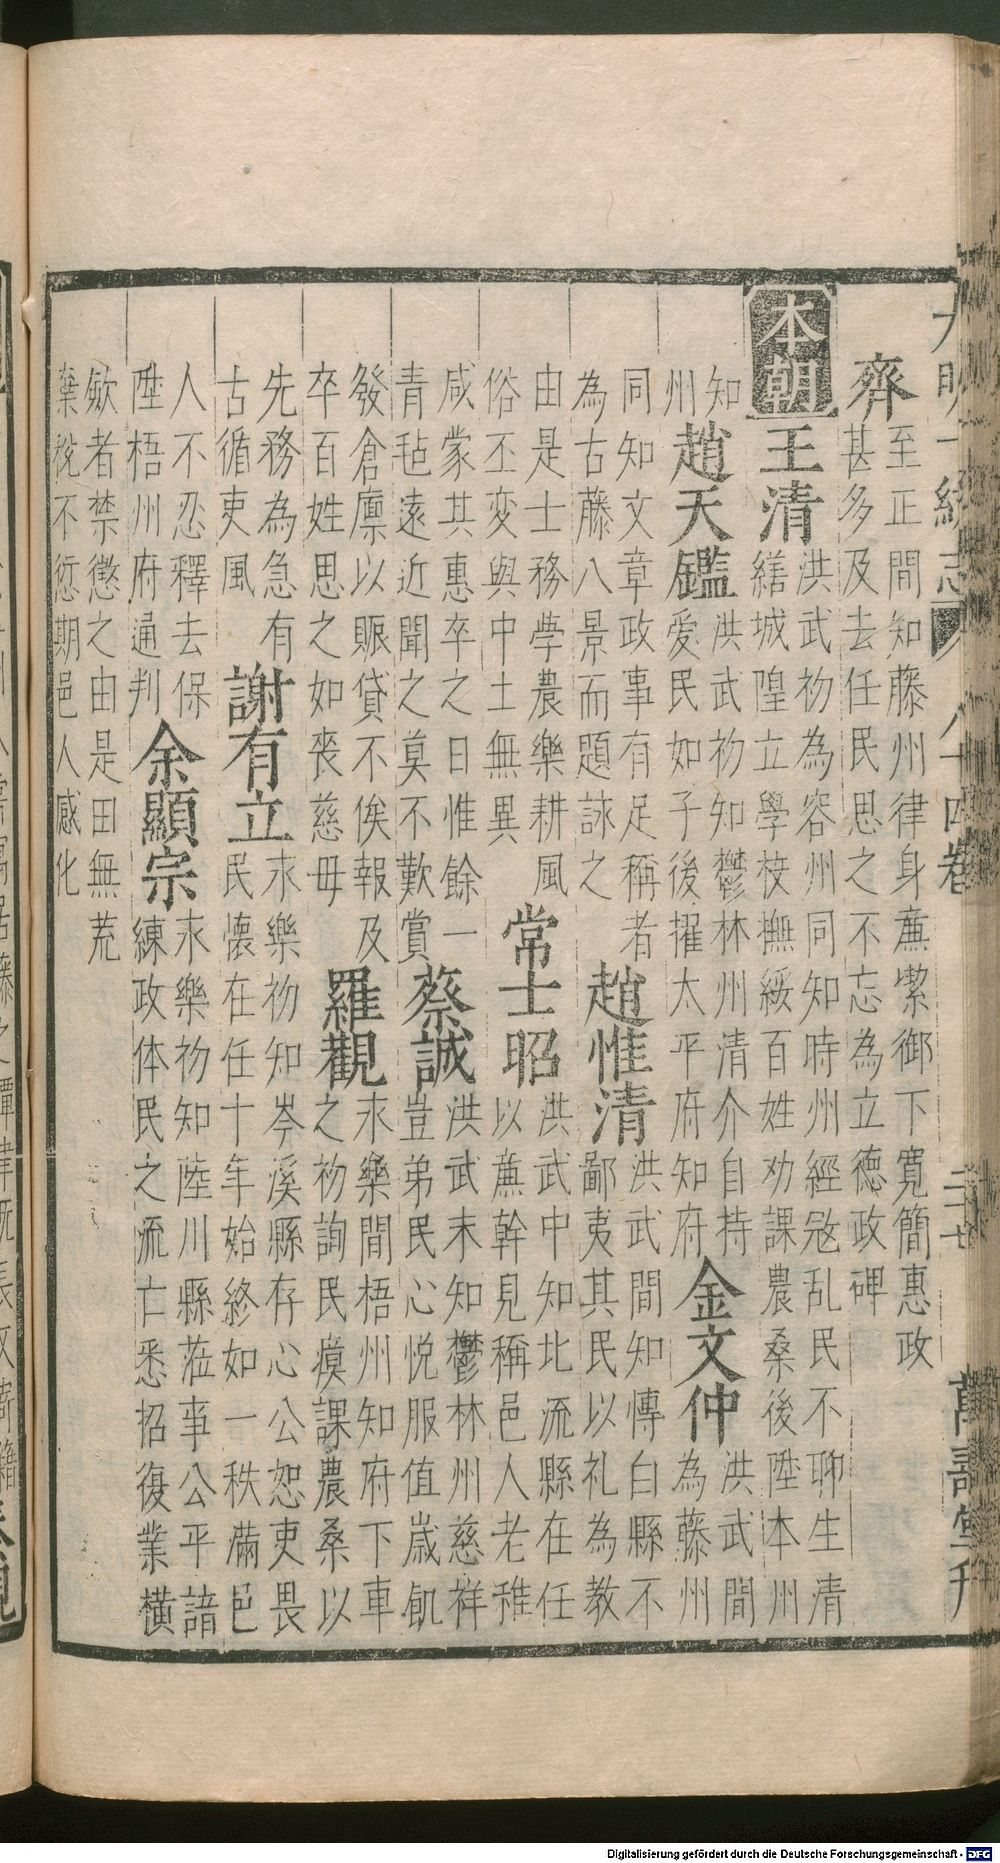 大明一統志 八十四卷 二十七 萬壽堂刊
齊
至正間知藤州律身廉潔御下寬簡惠政
甚多及去任民思之不忘為立德政碑
本朝
王清
洪武初為容州同知時州經冦乱民不聊生清
繕城隍立學校撫綏百姓劝課農桑後陞本州
知州
趙天鑑
洪武初知鬱林州清介自持
愛民如子後擢太平府知府
金文仲
洪武間
為藤州
同知文章政事有足稱者
為古藤八景而題詠之
趙惟清
洪武間知博白縣不
鄙夷其民以礼為教
由是士務學農樂耕風
俗丕變與中土無異
常士昭
洪武中知北流縣在任
以廉幹見稱邑人老稚
咸蒙其惠卒之日惟餘一
青毡遠近聞之莫不歎賞
蔡誠
洪武末知鬱林州慈祥
豈弟民心悦服值歲飢
發倉廪以賑貸不俟報及
卒百姓思之如喪慈毋
羅觀
永樂間梧州知府下車
之初詢民瘼課農桑以
先務為急有
古循吏風
謝有立
永樂初知岑溪縣存心公恕吏畏
民懷在任十年始終如一秩滿邑
人不忍釋去保
陞梧州府通判
余顯宗
永樂初知陸川縣蒞事公平諳
練政体民之流亡悉招復業橫
歛者禁懲之由是田無荒
棄稅不愆期邑人感化
Digitalisierung gefördert durch die Deutsche Forschungsgemeinschaft - DFG